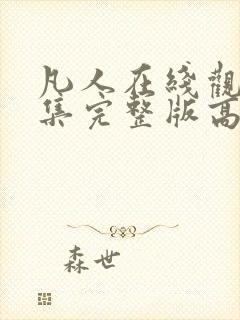 凡人在綫觀
集完整版高
森世